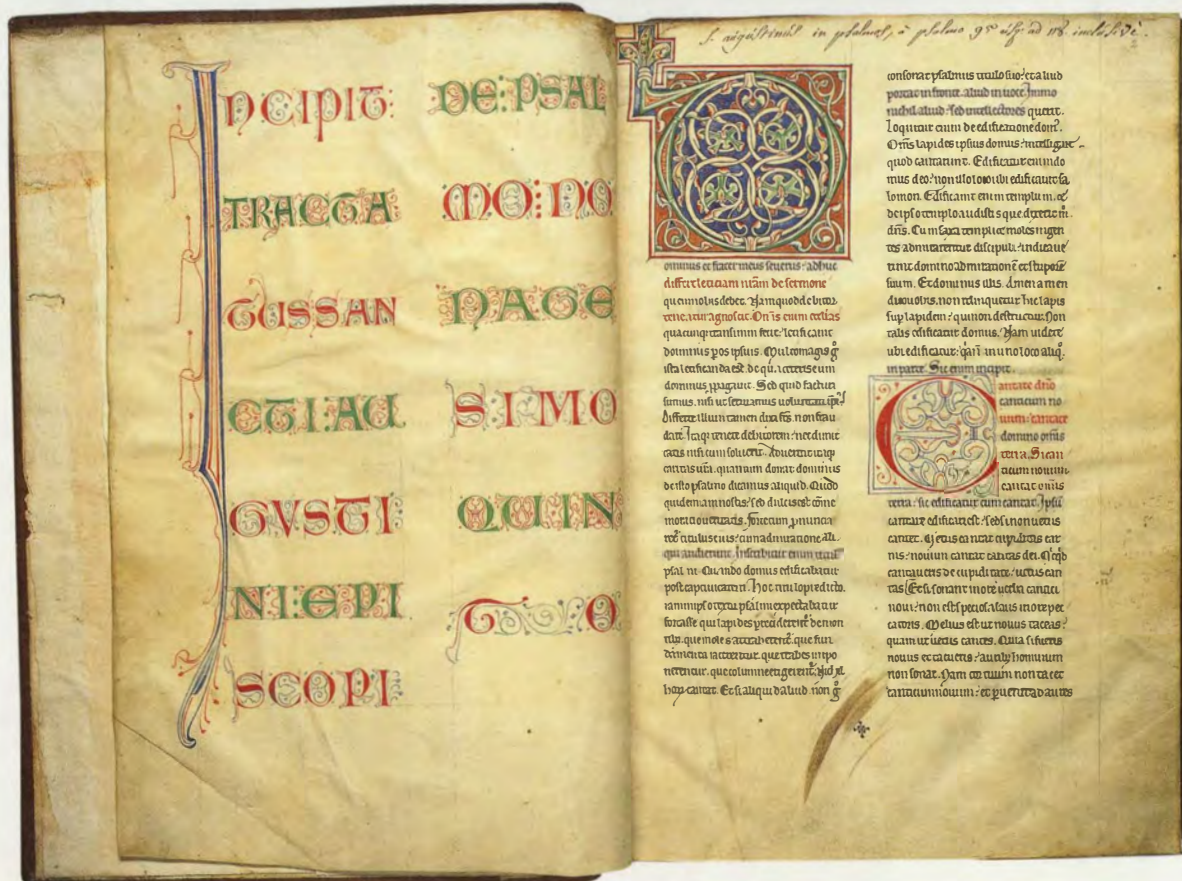 INCIPIT:
TRACTA
TUSSAN
CTI:AU
GVSTI
NI:EPI
SCOPI
DE:PSAL
MO:NO
NAGE
SIMO
QUIN
TO
S. augustinus in psalmos, à psalmo 95 usq; ad 118. inclusivè.
D
ominus et frater meus seuerus: adhuc
differt leticiam nr̄am de sermone
quem nobis debet. Nam quod debitor
teneatur agnoscit. Om̄is enim ecclias
quacunq; transitum fecit: letificauit
dominus p os ipsius. Multo magis g̊
ista letificanda est. de qua ceteris eum
dominus ppagauit. Sed quid facturi
sumus. nisi ut seruiamus uoluntati
Differt illum tamen dixi frs. non frau
dat. Itaq; tenete debitorem: nec dimit
tatis nisi cum soluerit. Aduertat itaq;
caritas ur̄a. quantum donat dominus
de isto psalmo dicamus aliquid. Quod
quidem iam nostis: sed dulcis est
moratio ueritatis.
titulus eius: cum admiratione ali
qui audierunt. Inscribitur enim
psalmi. Quando domus edificabatur
post captiuitatem. Hoc titulo predicto.
iam in ipso textu psalmi expectabatur
fortasse qui lapides preciderent de mon
tib; que moles attraherentur. que fun
damenta iacerentur. que trabes impo
nerentur. que columne erigerent.
horum cantat. Et si aliquid aliud. non g̊
consonat psalmus titulo suo: et aliud
portat in fronte. aliud in uoce. Immo
nichil aliud: sed intellectores querit.
Loquitur enim de edificatione dom.
Om̄s lapides ipsius domus: intelligant
quod cantarunt. Edificatur enim do
mus deo: non illo loco ubi edificauit sa
lomon. Edificauit enim templum. et
de ipso templo audistis que dixerit
dn̄s. Cum saxa templi et moles ingen
tes admirarentur discipuli: indicaue
runt domino admirationē et stuporē
suum. Et dominus illis. Amen amen
dico uobis. non relinquetur hic lapis
sup lapidem: qui non destruatur. Non
talis edificatur domus. Nam uidete
ubi edificatur: qm̄ in uno loco aliq.
in parte. Sic enim incipit.
C
antate dn̄o
canticum no
uum: cantate
domino omīs
terra. Si can
ticum nouum
cantat omīs
terra: sic edificatur cum cantat. Ipsū
cantare edificari est: sed si non uetus
cantet. Vetus cantat cupiditas car
nis: nouum cantat caritas dei. Quicq̄d
cantaueris de cupiditate: uetus can
tas. Etsi sonant in ore uerba cantici
noui: non est speciosa laus in ore pec
catoris. Melius est ut nouus taceas:
quam ut uetus cantes. Quia si fueris
nouus et tacueris: aurib; hominum
non sonat. Nam cor tuum non tacet
canticum nouum: et puenit ad aures